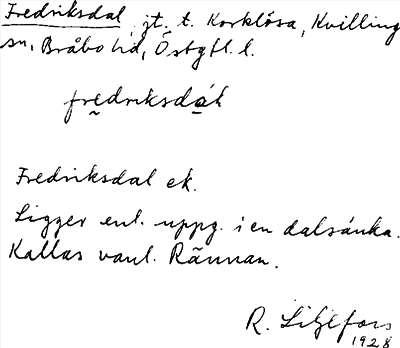 Fredriksdal, jt. t. Korklösa, Kvilling
sn, Bråbo hd, Östgtl. l.
fredriksdál
Fredriksdal ek.
Ligger enl. uppg. i en dalsänka.
Kallas vanl. Rännan.
R. Liljefors
1928